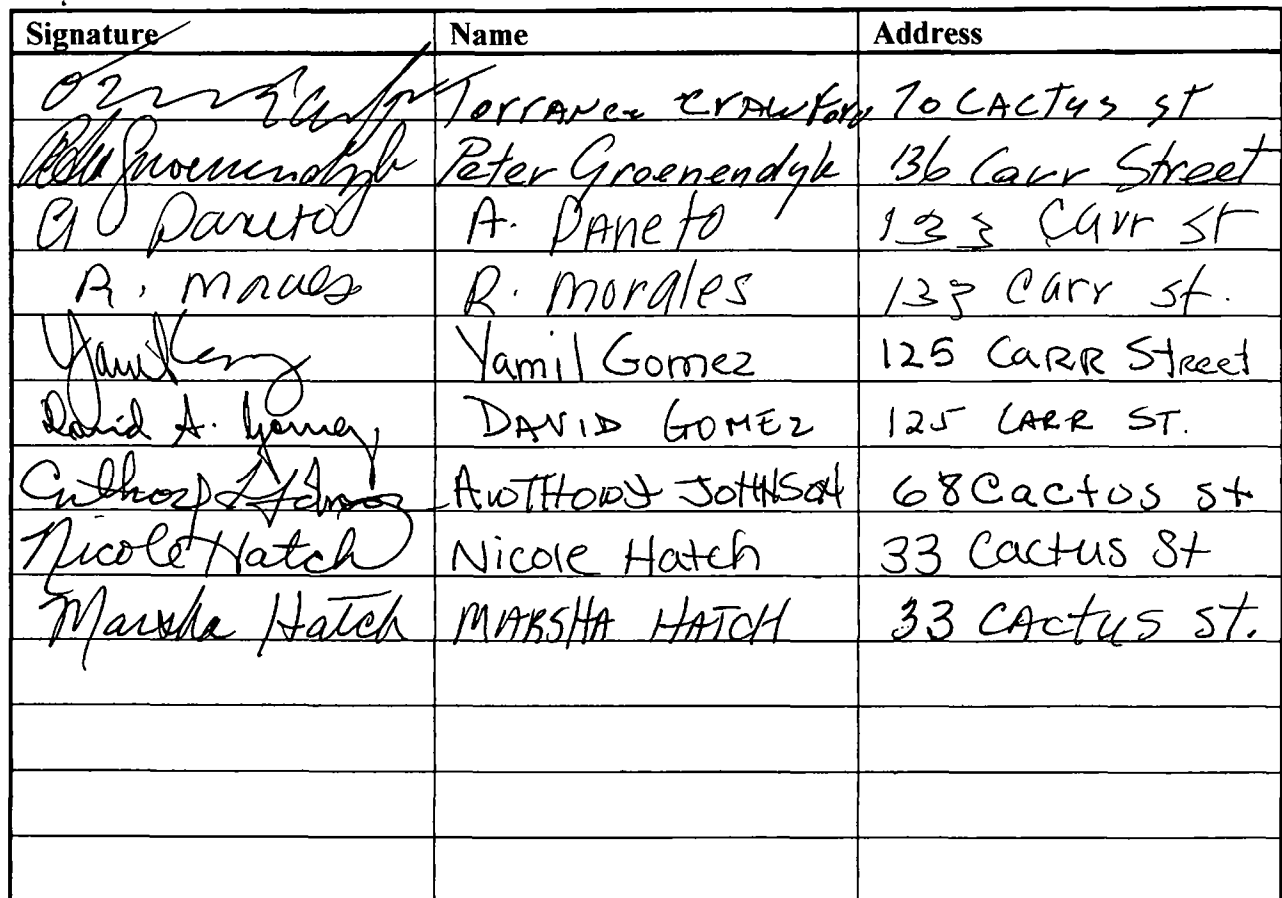 Signature Name Address
Torrance Crawford 70 Cactus st
Peter Groenendyk 136 Carr Street
Paneto A. Paneto 133 Carr st
R. Morales R. Morales 133 Carr st.
Yamil Yamil Gomez 125 CARR Street
David A. Gomez, DAVID GOMEZ 125 CARR ST.
ANTHONY JOHNSON 68 Cactus st
Nicole Hatch Nicole Hatch 33 Cactus St
Marsha Hatch MARSHA HATCH 33 CACTUS ST.